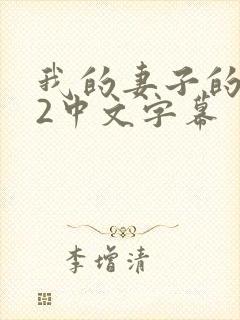 我的妻子的
2中文字幕
李增清